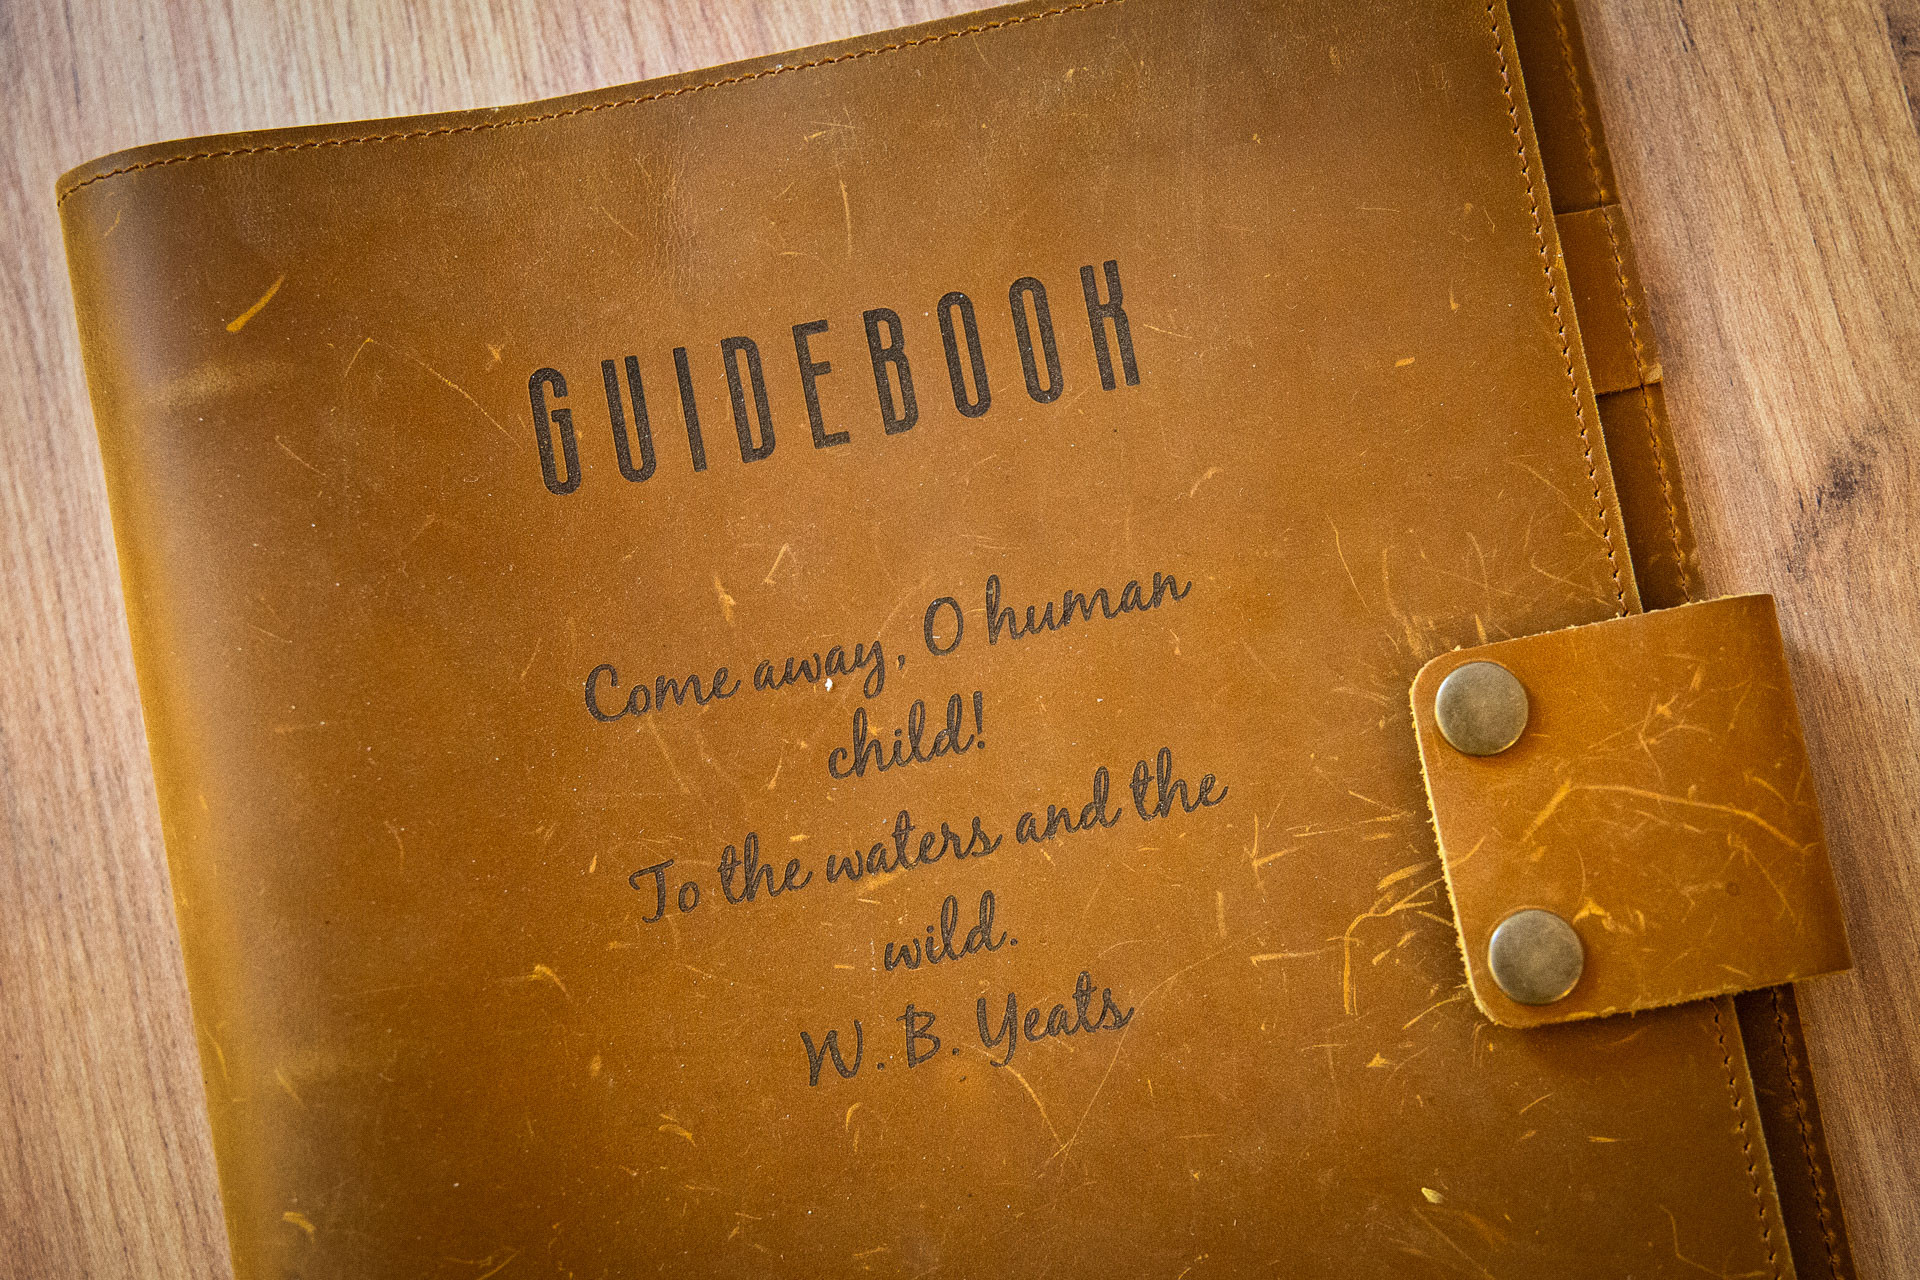 GUIDEBOOK
Come away, O human
child!
To the waters and the
wild.
W. B. Yeats